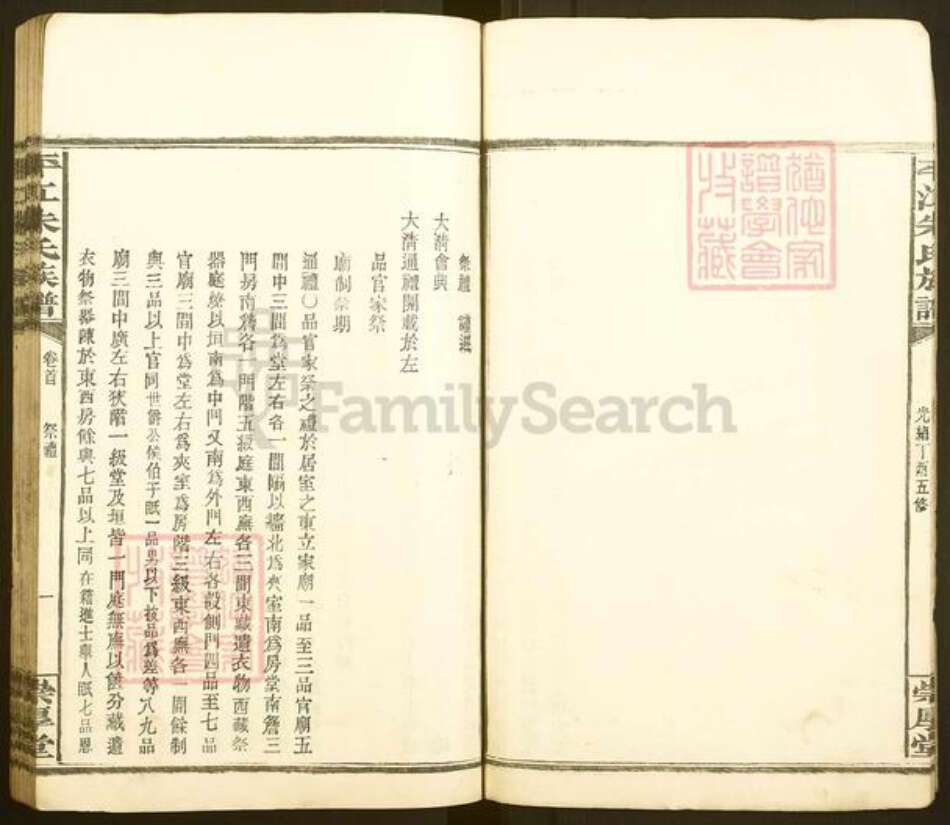 平江朱氏族譜
光緒丁酉五修
崇厚堂
猶他家譜學會收藏
祭禮 謹遵
大清會典
大清通禮開載於左
品官家祭
廟制祭期
通禮〇品官家祭之禮於居室之東立家廟一品至三品官廟五
間中三間爲堂左右各一間隔以牆北爲夾室南爲房堂南簷三
門房南簷各一門階五級庭東西廡各三間東藏遺衣物西藏祭
器庭繚以垣南爲中門又南爲外門左右各設側門四品至七品
官廟三間中爲堂左右爲夾室爲房階三級東西廡各一間餘制
與三品以上官同世爵公侯伯子眡一品男以下按品爲差等八九品
廟三間中廣左右狹階一級堂及垣皆一門庭無廡以篋分藏遺
衣物祭器陳於東西房餘與七品以上同在籍進士舉人眡七品恩
平江朱氏族譜
卷首
祭禮
一
崇厚堂
FamilySearch